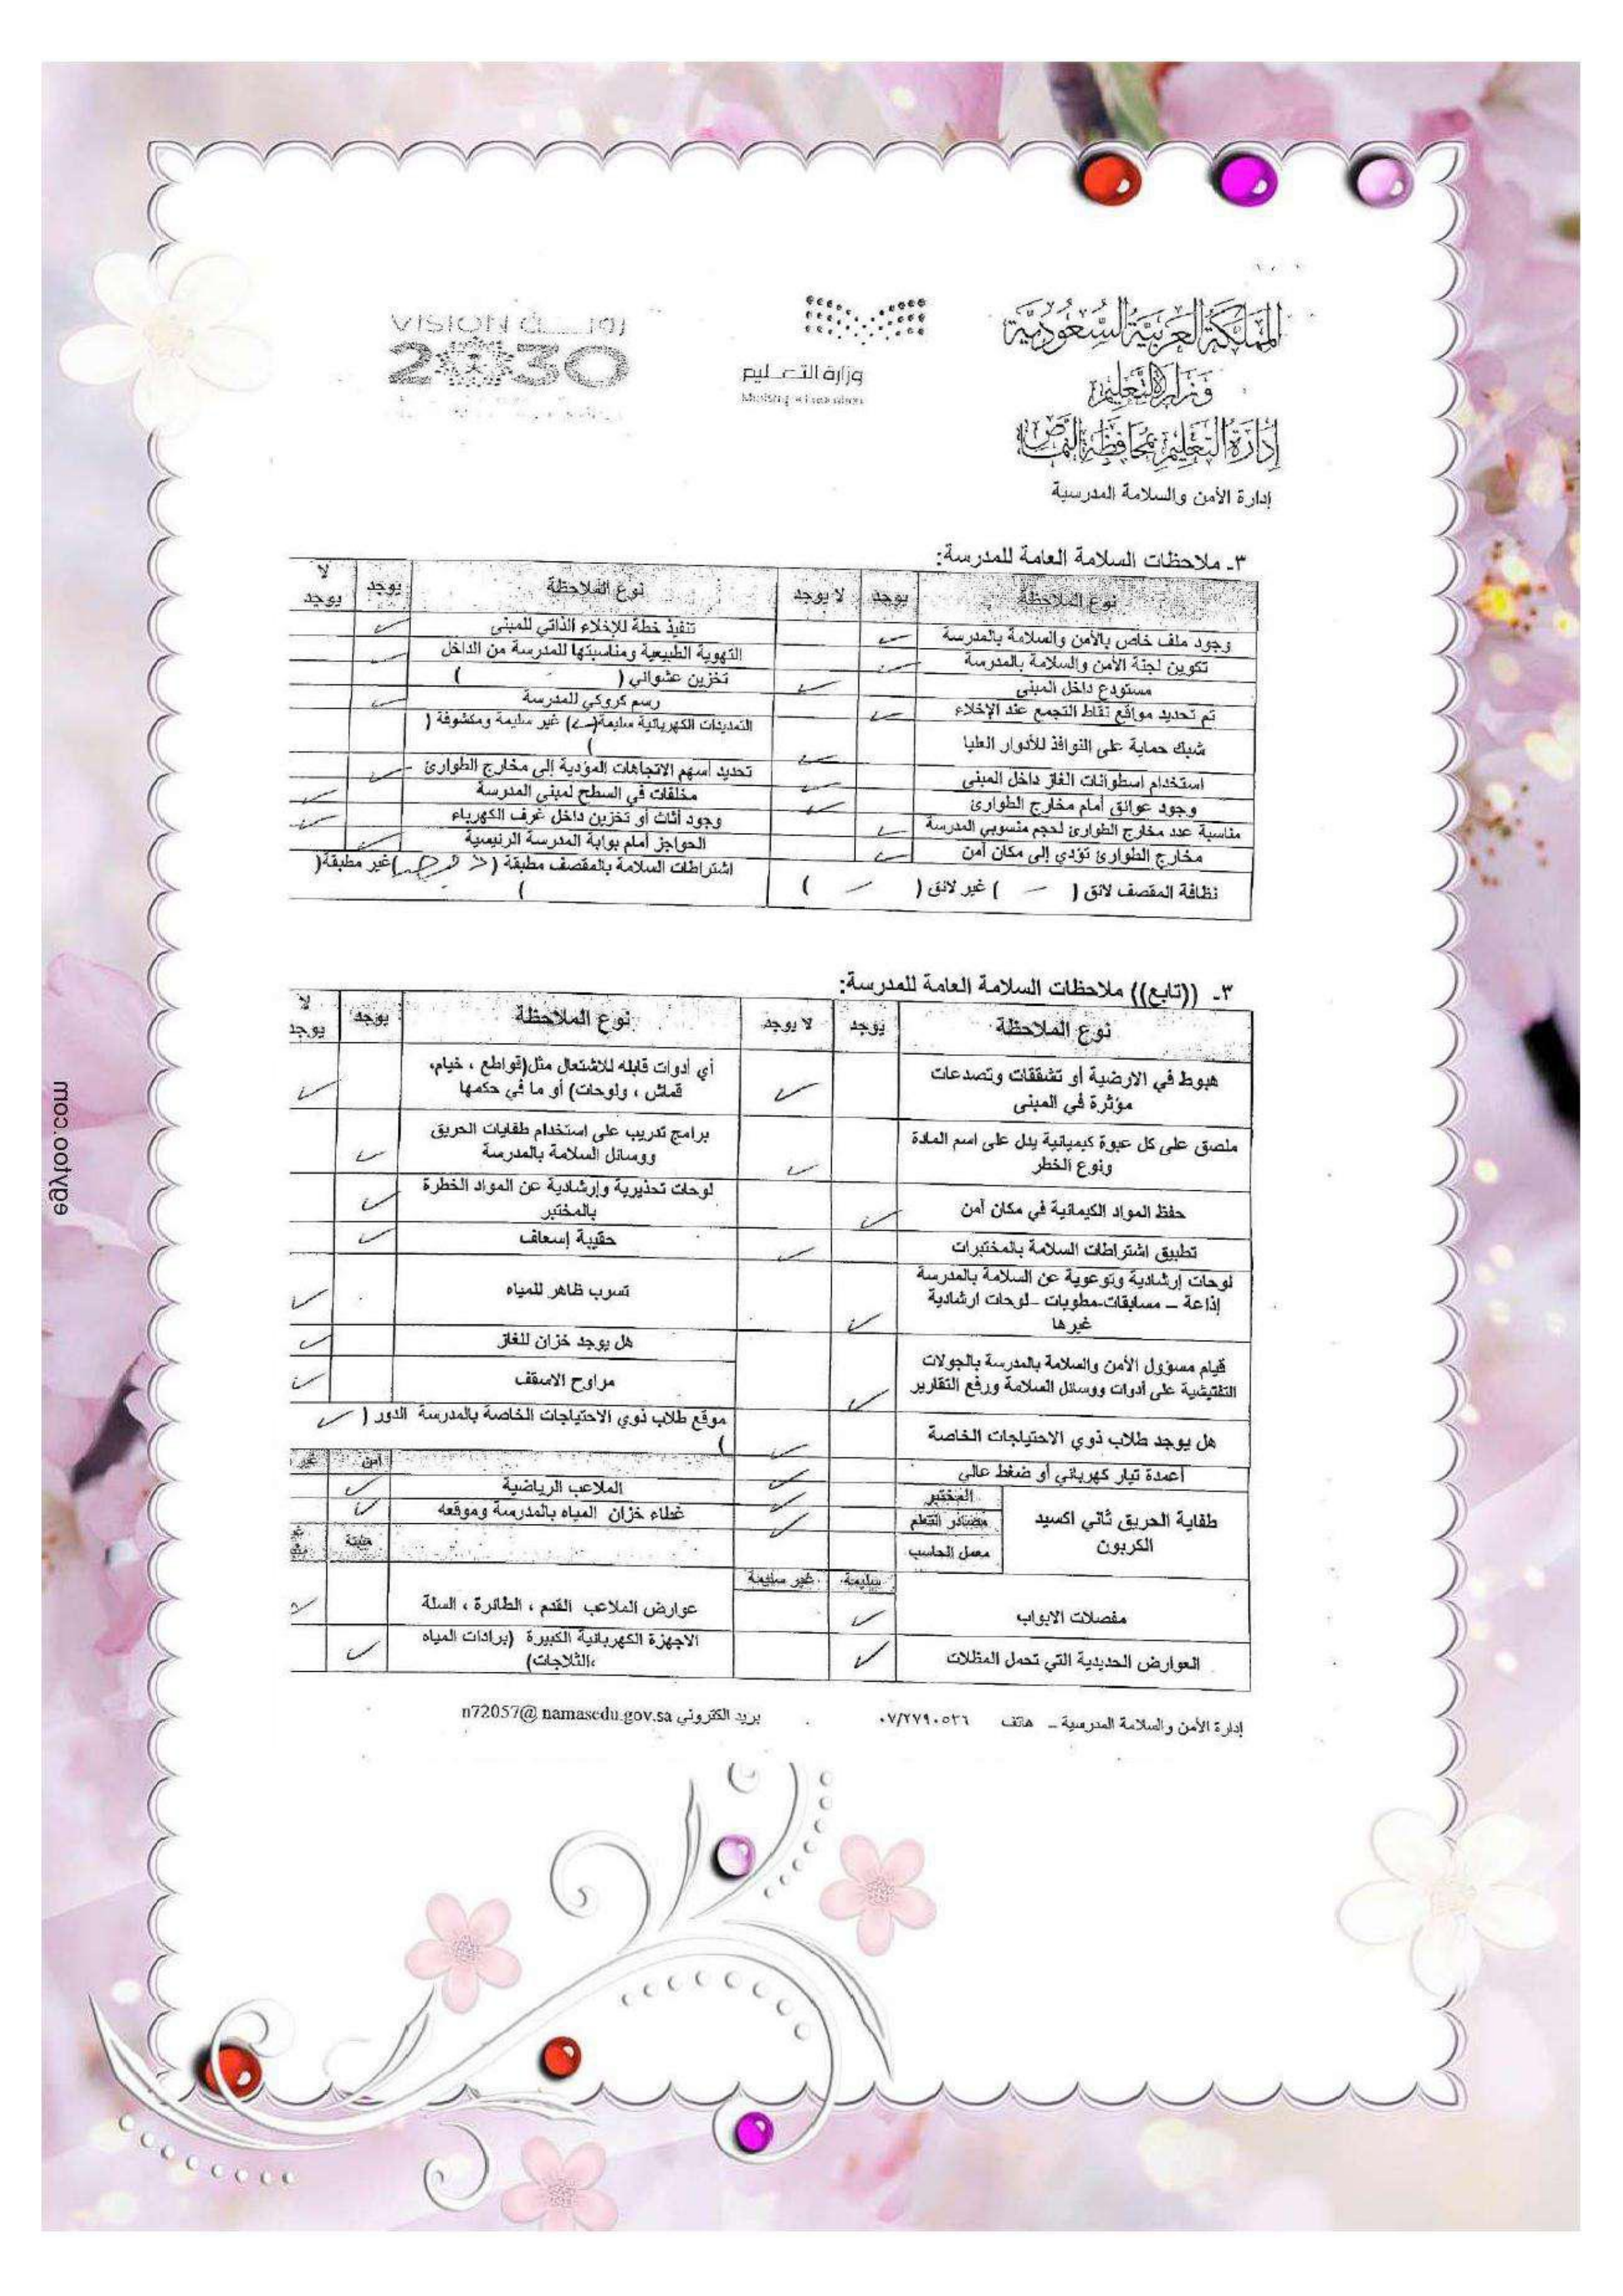 المملكة العربية السعودية
وزارة التعليم
إدارة التعليم بمحافظة النماص
إدارة الأمن والسلامة المدرسية
وزارة التعليم
Ministry of Education
VISION رؤية
2030
٣- ملاحظات السلامة العامة للمدرسة:
نوع الملاحظة يوجد لا يوجد نوع الملاحظة يوجد لا يوجد
وجود ملف خاص بالأمن والسلامة بالمدرسة ✓ تنفيذ خطة للإخلاء الذاتي للمبنى ✓
تكوين لجنة الأمن والسلامة بالمدرسة ✓ التهوية الطبيعية ومناسبتها للمدرسة من الداخل ✓
مستودع داخل المبنى ✓ تخزين عشوائي ( )
تم تحديد مواقع نقاط التجمع عند الإخلاء ✓ رسم كروكي للمدرسة ✓
شبك حماية على النوافذ للأدوار العليا ✓ التمديدات الكهربائية سليمة( ) غير سليمة ومكشوفة ( )
استخدام اسطوانات الغاز داخل المبنى ✓ تحديد أسهم الاتجاهات المؤدية إلى مخارج الطوارئ ✓
وجود عوائق أمام مخارج الطوارئ ✓ مخلفات في السطح لمبنى المدرسة ✓
مناسبة عدد مخارج الطوارئ لحجم منسوبي المدرسة ✓ وجود أثاث أو تخزين داخل غرف الكهرباء ✓
مخارج الطوارئ تؤدي إلى مكان آمن ✓ الحواجز أمام بوابة المدرسة الرئيسية ✓
نظافة المقصف لائق ( – ) غير لائق ( – ) اشتراطات السلامة بالمقصف مطبقة ( )غير مطبقة( )
٣- ((تابع)) ملاحظات السلامة العامة للمدرسة:
نوع الملاحظة يوجد لا يوجد نوع الملاحظة يوجد لا يوجد
هبوط في الارضية أو تشققات وتصدعات مؤثرة في المبنى ✓ أي أدوات قابله للاشتعال مثل(قواطع ، خيام، قماش ، ولوحات) أو ما في حكمها ✓
ملصق على كل عبوة كيميائية يدل على اسم المادة ونوع الخطر ✓ برامج تدريب على استخدام طفايات الحريق ووسائل السلامة بالمدرسة ✓
حفظ المواد الكيمائية في مكان آمن ✓ لوحات تحذيرية وإرشادية عن المواد الخطرة بالمختبر ✓
تطبيق اشتراطات السلامة بالمختبرات ✓ حقيبة إسعاف ✓
لوحات إرشادية وتوعوية عن السلامة بالمدرسة إذاعة – مسابقات-مطويات -لوحات ارشادية غيرها ✓ تسرب ظاهر للمياه ✓
هل يوجد خزان للغاز ✓
قيام مسؤول الأمن والسلامة بالمدرسة بالجولات التفتيشية على أدوات ووسائل السلامة ورفع التقارير ✓ مراوح الاسقف ✓
هل يوجد طلاب ذوي الاحتياجات الخاصة ✓ موقع طلاب ذوي الاحتياجات الخاصة بالمدرسة الدور ( ✓ )
أعمدة تيار كهربائي أو ضغط عالي ✓ آمن غير
طفاية الحريق ثاني اكسيد الكربون المختبر ✓ الملاعب الرياضية ✓
مصادر التعلم ✓ غطاء خزان المياه بالمدرسة وموقعه ✓
معمل الحاسب مثبتة
سليمة غير سليمة
مفصلات الابواب ✓ عوارض الملاعب القدم ، الطائرة ، السلة ✓
العوارض الحديدية التي تحمل المظلات ✓ الاجهزة الكهربائية الكبيرة (برادات المياه ،الثلاجات) ✓
إدارة الأمن والسلامة المدرسية – هاتف ٠٧/٢٧٩٠٥٢٦ بريد الكتروني n72057@namasedu.gov.sa
egytoo.com